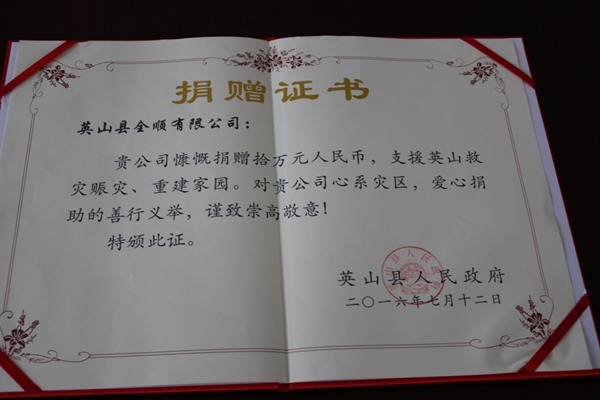 捐赠证书
英山县全顺有限公司：
贵公司慷慨捐赠拾万元人民币，支援英山救
灾赈灾、重建家园。对贵公司心系灾区，爱心捐
助的善行义举，谨致崇高敬意！
特颁此证。
英山县人民政府
二〇一六年七月十二日